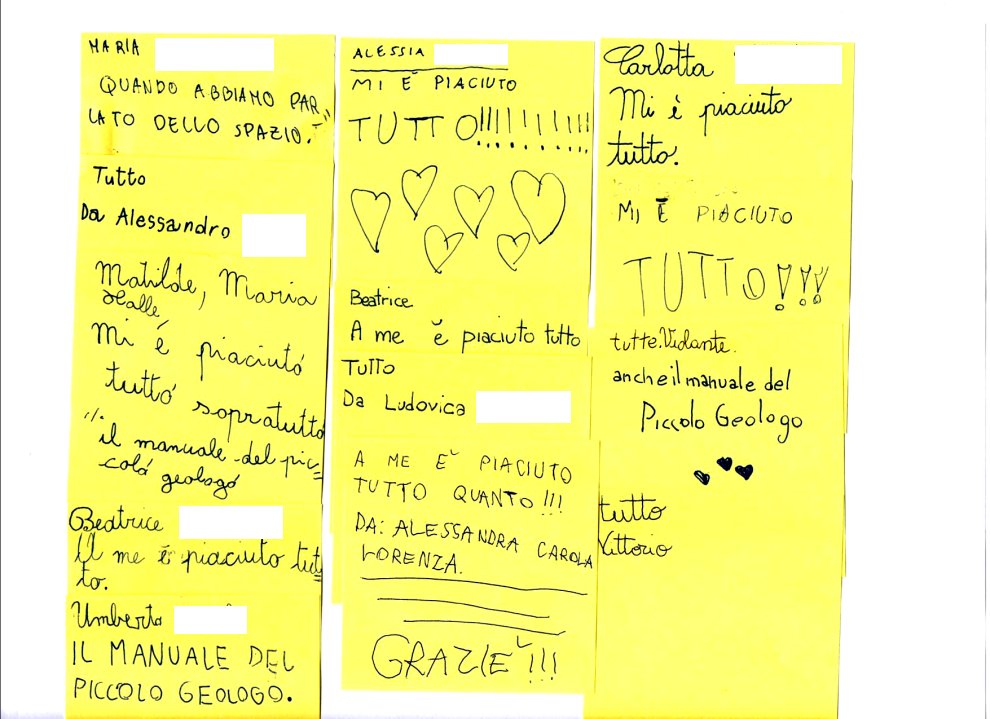 MARIA
QUANDO ABBIAMO PAR
LATO DELLO SPAZIO.
Tutto
Da Alessandro
Matilde, Maria
Mi é piaciutó
tuttó sopratuttó
il manuale del pic
coló geologó
Beatrice
A me è piaciuto tut
to.
Umberto
IL MANUALE DEL
PICCOLO GEOLOGO.
ALESSIA
MI È PIACIUTO
TUTTO!!!!!!!!!!
Beatrice
A me è piaciuto tutto
TUTTO
Da Ludovica
A ME E' PIACIUTO
TUTTO QUANTO!!!
DA: ALESSANDRA CAROLA
LORENZA.
GRAZIE!!!
Carlotta
Mi è piaciuto
tutto.
MI È PIACIUTO
TUTTO!!!
tutte.Violante.
anche il manuale del
Piccolo Geologo
tutto
Vittorio